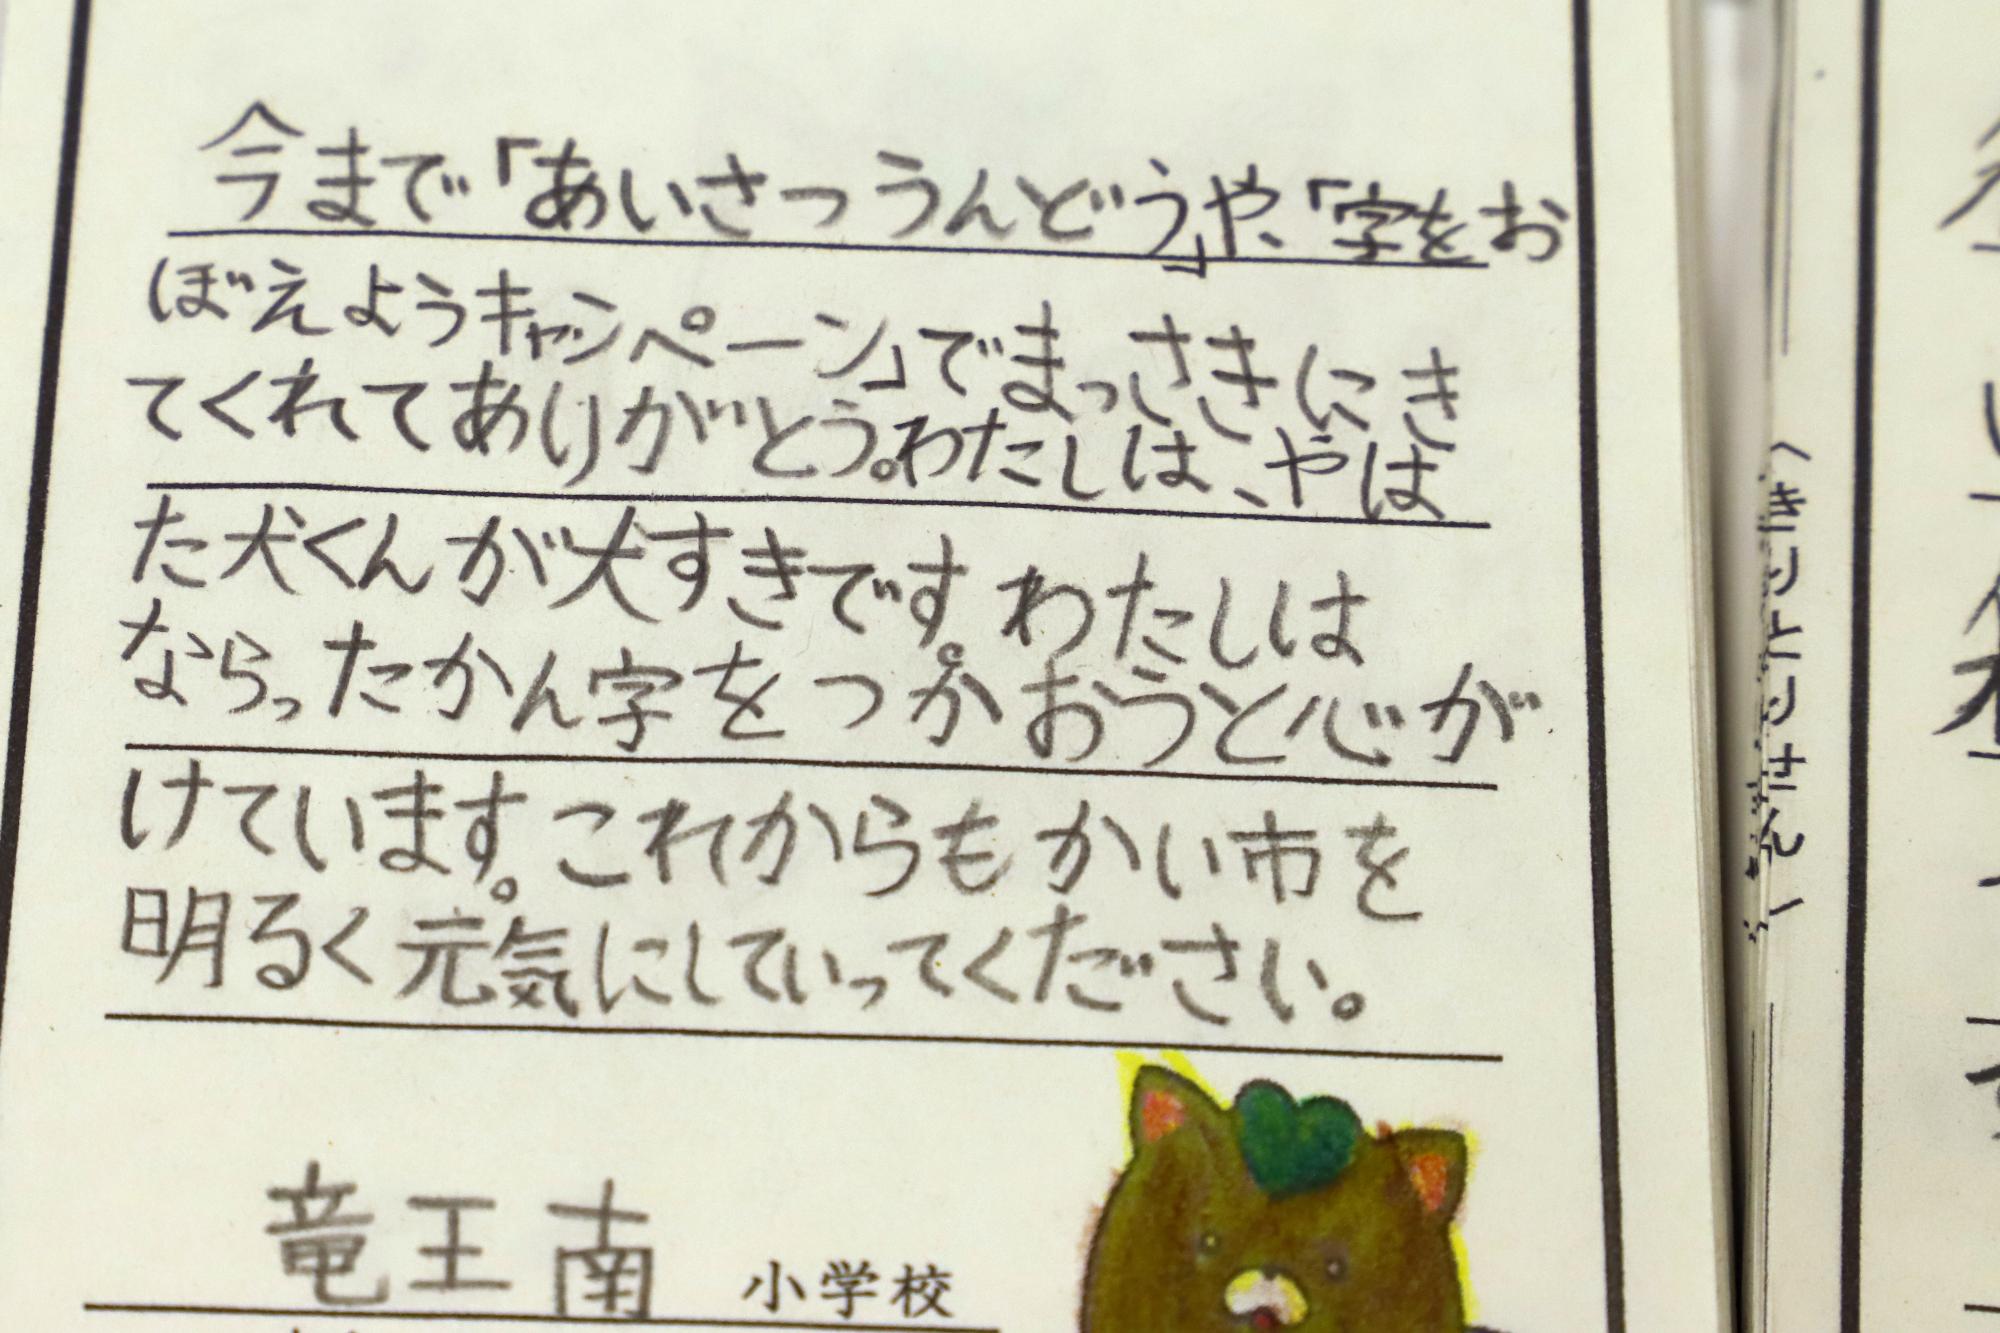 今まで「あいさつうんどう」や、「字をお
ぼえようキャンペーン」でまっさきにき
てくれてありがとう。わたしは、やは
た犬くんが大すきです。わたしは
ならったかん字をつかおうと心が
けています。これからもかい市を
明るく元気にしていってください。
竜王南 小学校
〈きりとりせん〉